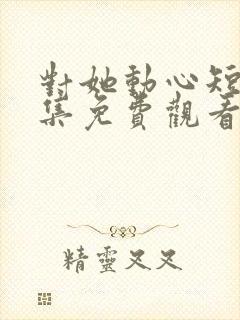 對她動心短
集免費觀看
精靈又又